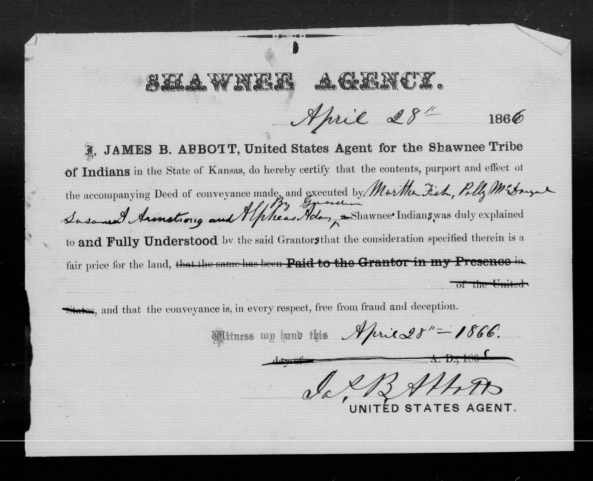 SHAWNEE AGENCY.
April 28th 1866
I, JAMES B. ABBOTT, United States Agent for the Shawnee Tribe
of Indians in the State of Kansas, do hereby certify that the contents, purport and effect of
the accompanying Deed of conveyance made, and executed by Martha Fish, Polly McDougal
By Guardian
Susanna Armstrong and Alpheas Shawnee Indians was duly explained
to and Fully Understood by the said Grantors that the consideration specified therein is a
fair price for the land, that the same has been Paid to the Grantor in my Presence in
of the United
States, and that the conveyance is, in every respect, free from fraud and deception.
Witness my hand this April 28th 1866.
day of A. D., 186
Jas. B. Abbott
UNITED STATES AGENT.